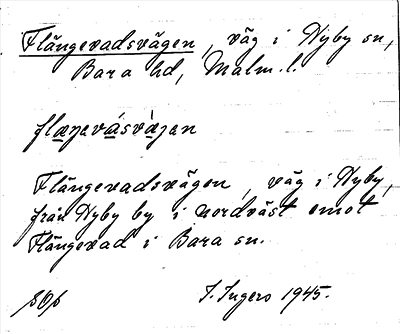 Flängevadsvägen, väg i Nyby sn,
Bara hd, Malm. l.
Flängevadsvägen, väg i Nyby,
från Nyby by i nordväst emot
Flängevad i Bara sn.
I. Ingers 1945.